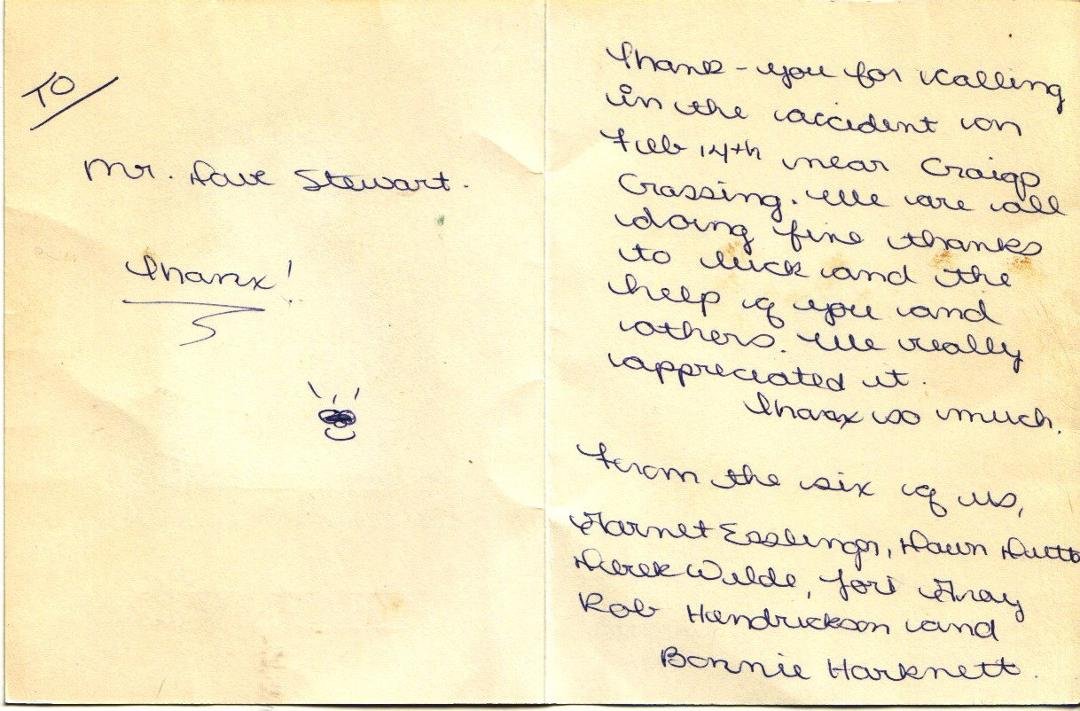 TO
Mr. Dave Stewart.
Thanx!
Thank-you for calling
in the accident on
Feb 14th near Craigs
Crossing. We are all
doing fine thanks
to luck and the
help of you and
others. We really
appreciated it.
Thanx so much.
From the six of us,
Garnet Esslinger, Dawn Dutto
Derek Wilde, Lori Gray
Rob Hendrickson and
Bonnie Harknett.